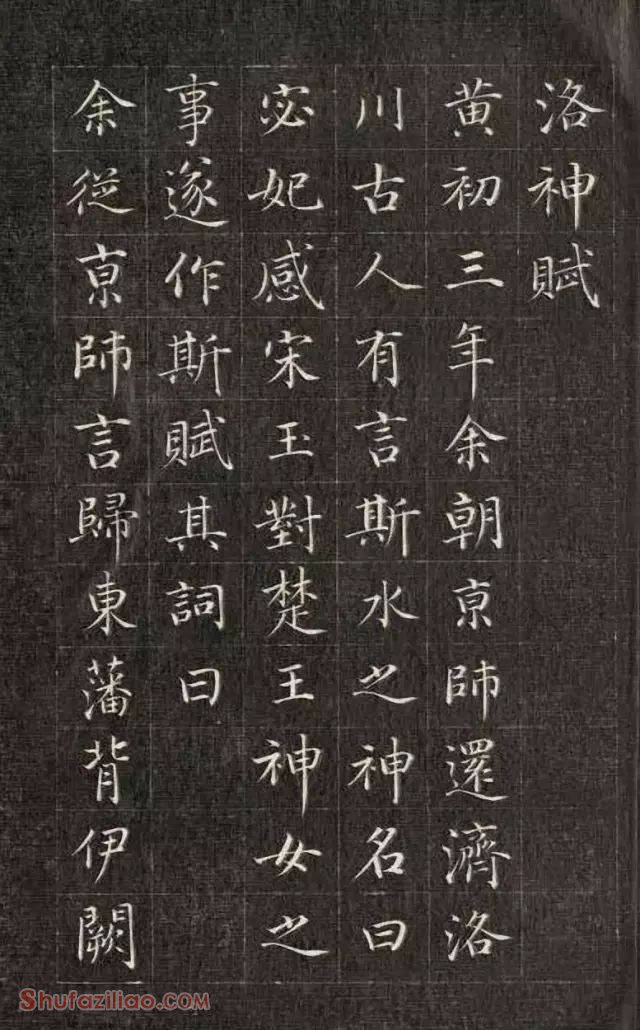 洛神賦
黃初三年余朝京師還濟洛
川古人有言斯水之神名曰
宓妃感宋玉對楚王神女之
事遂作斯賦其詞曰
余從京師言歸東藩背伊闕
Shufaziliao.COM